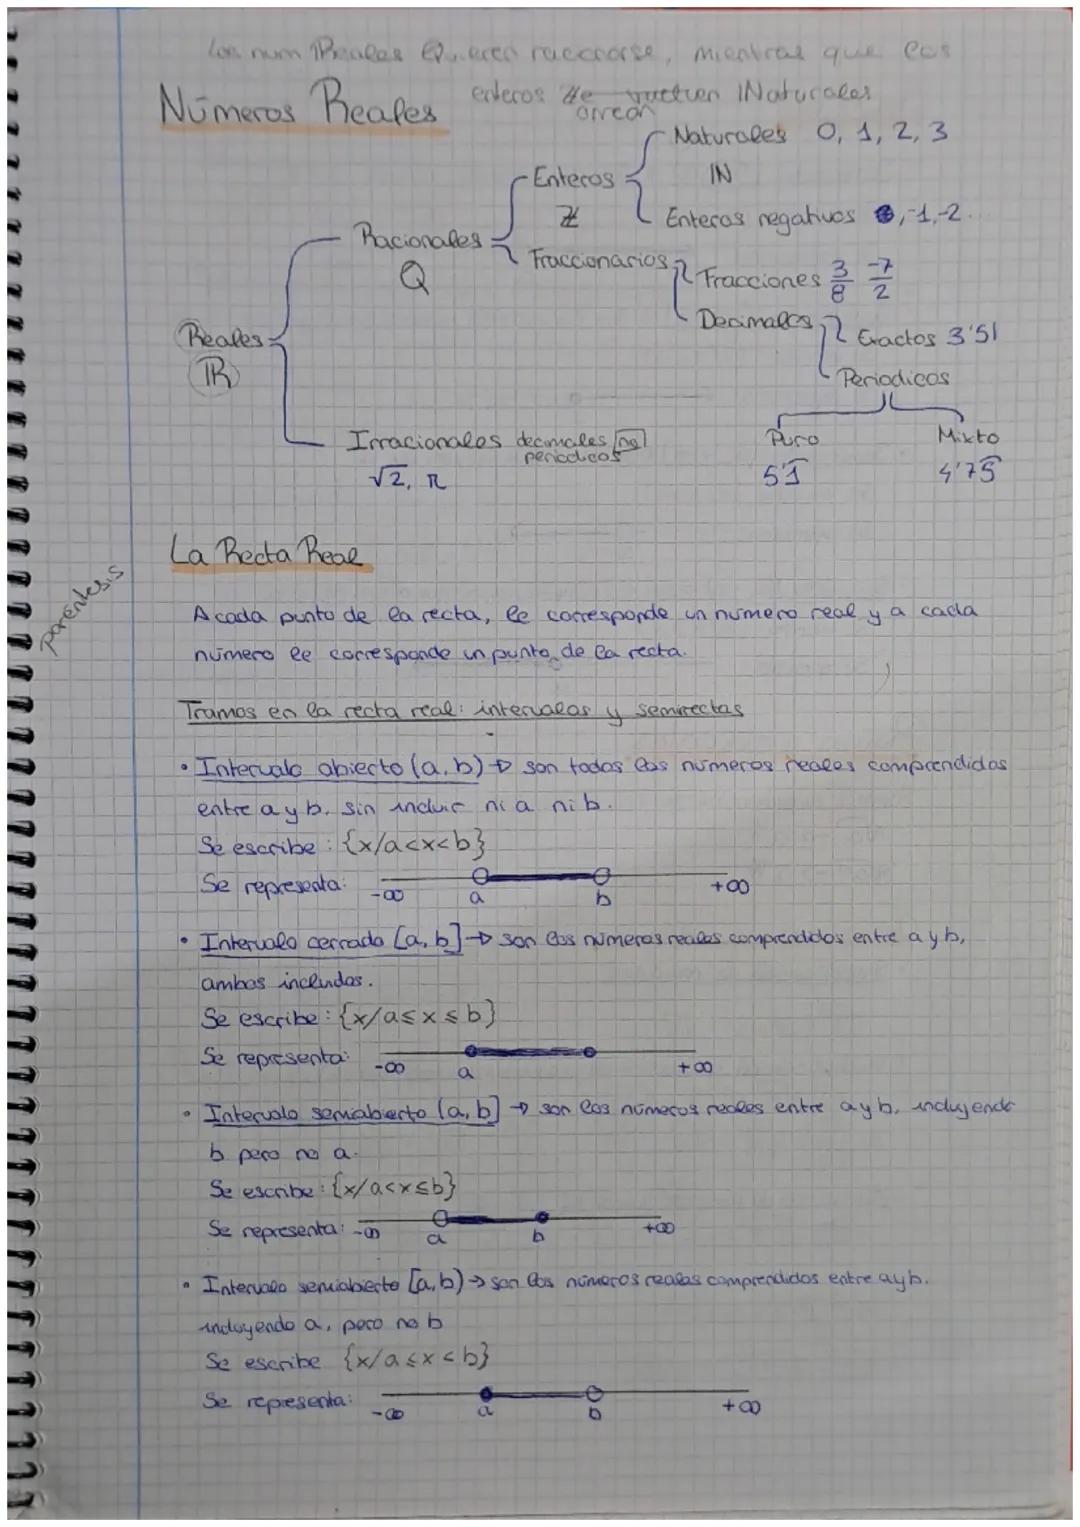 Los num Reales Quieren racionarse, mientras que los
enteros Ze vuelven Naturales
Números Reales
Naturales 0, 1, 2, 3
Enteros
ℕ
ℤ
Enteros negativos , -1, -2.
Racionales
Q
Fraccionarios
Fracciones 3/8 -7/2
Decimales
Exactos 3'51
Reales
ℝ
Periodicos
Irracionales decimales no
periodicos
√2, π
Puro
Mixto
5'1̑
4'75̑
La Recta Real
parentesis
A cada punto de la recta, le corresponde un numero real y a cada
número le corresponde un punto de la recta.
Tramos en la recta real: intervalos y semirectas
• Intervalo abierto (a, b) → son todos los números reales comprendidos
entre a y b, sin incluir ni a ni b.
Se escribe: {x/a<x<b}
Se representa:
-∞ a b +∞
• Intervalo cerrado [a, b] → son los números reales comprendidos entre a y b,
ambos incluidos.
Se escribe: {x/a≤x≤b}
Se representa:
-∞ a +∞
• Intervalo semiabierto (a, b] → son los números reales entre a y b, incluyendo
b pero no a.
Se escribe: {x/a<x≤b}
Se representa: -∞ a b +∞
• Intervalo semiabierto [a, b) → son los números reales comprendidos entre a y b.
incluyendo a, pero no b
Se escribe {x/a≤x<b}
Se representa:
-∞ a b +∞